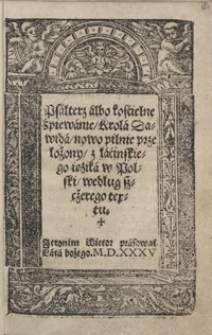 Psałterz albo kościelne
śpiewánie/ Krolá Da-
widá/ nowo pilnie prze
łożony/ z łácińskie-
go ięzyká w Pol-
ski/ według szcz
czerego tex-
tu.
Jeronim Wietor prásował
Látá bożego. M.D.XXXV